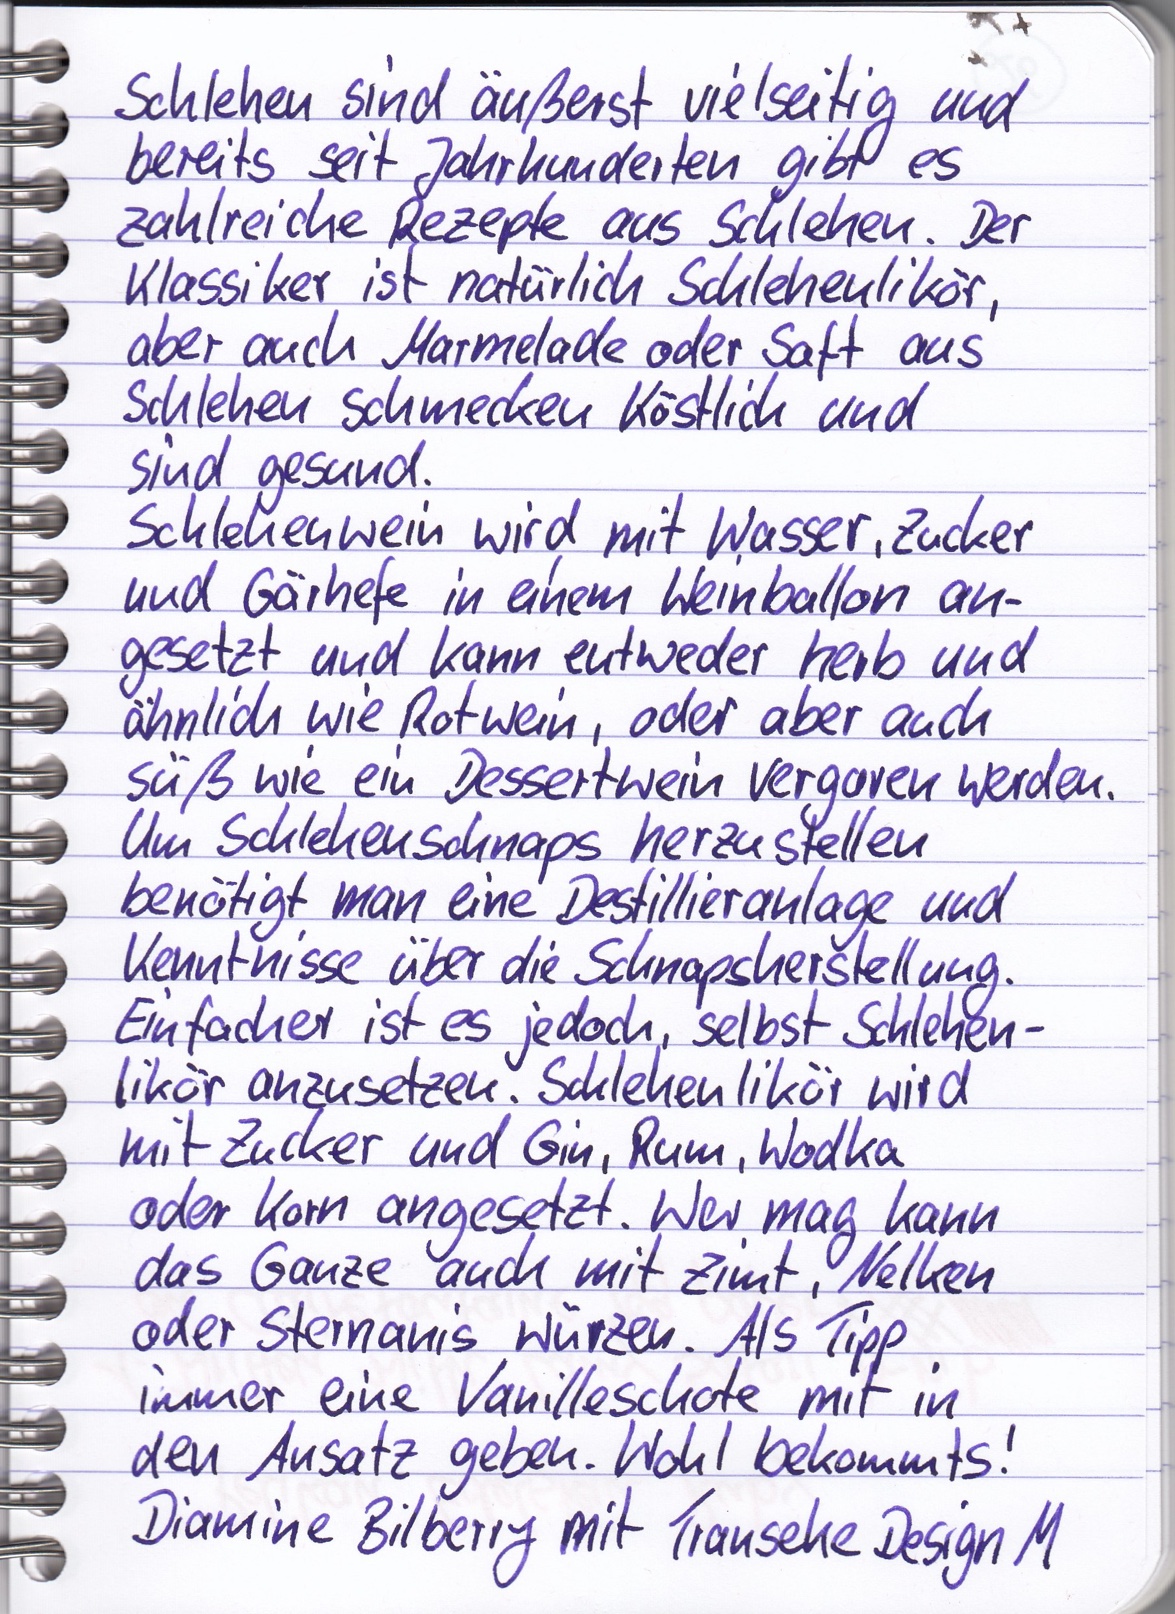 Schlehen sind äußerst vielseitig und
bereits seit Jahrhunderten gibt es
zahlreiche Rezepte aus Schlehen. Der
Klassiker ist natürlich Schlehenlikör,
aber auch Marmelade oder Saft aus
Schlehen schmecken köstlich und
sind gesund.
Schlehenwein wird mit Wasser, Zucker
und Gärhefe in einem Weinballon an-
gesetzt und kann entweder herb und
ähnlich wie Rotwein, oder aber auch
süß wie ein Dessertwein vergoren werden.
Um Schlehenschnaps herzustellen
benötigt man eine Destillieranlage und
Kenntnisse über die Schnapsherstellung.
Einfacher ist es jedoch, selbst Schlehen-
likör anzusetzen. Schlehenlikör wird
mit Zucker und Gin, Rum, Wodka
oder Korn angesetzt. Wer mag kann
das Ganze auch mit Zimt, Nelken
oder Sternanis würzen. Als Tipp
immer eine Vanilleschote mit in
den Ansatz geben. Wohl bekommts!
Diamine Bilberry mit Design M